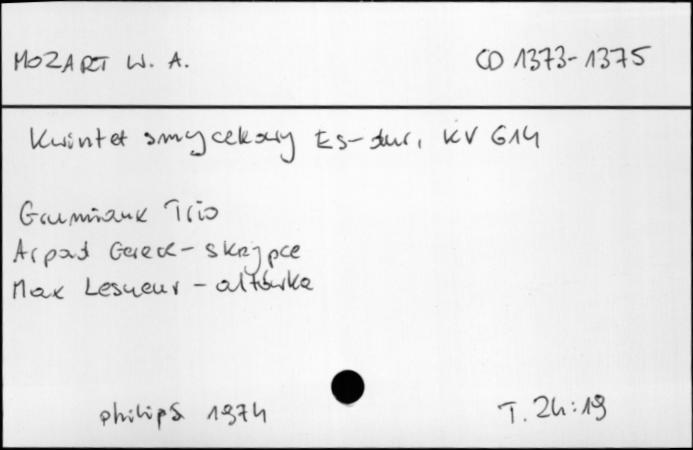 MOZART W. A. CD 1373-1375
Kwintet smyczkowy Es-dur, KV 614
Grumiaux Trio
Arpad Gereck - skrzypce
Max Lesueur - altówka
philips 1974 T. 24:19